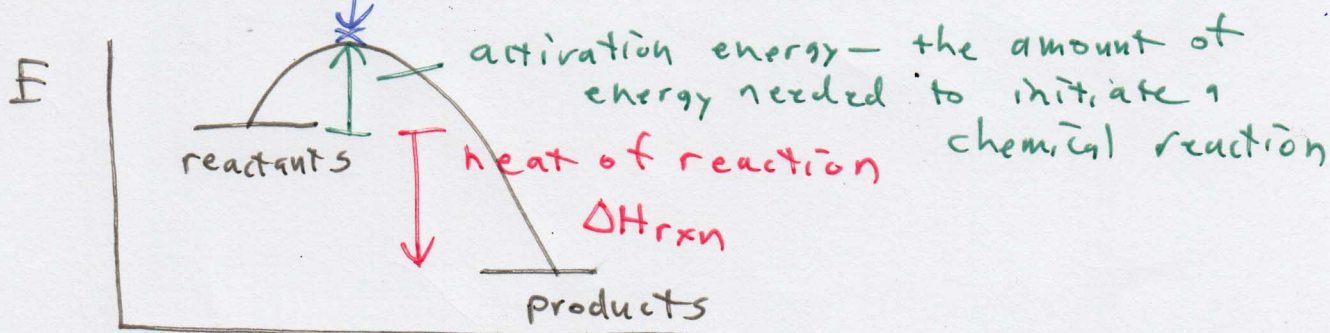 E
activation energy – the amount of
energy needed to initiate a
chemical reaction
reactants
heat of reaction
ΔHrxn
products